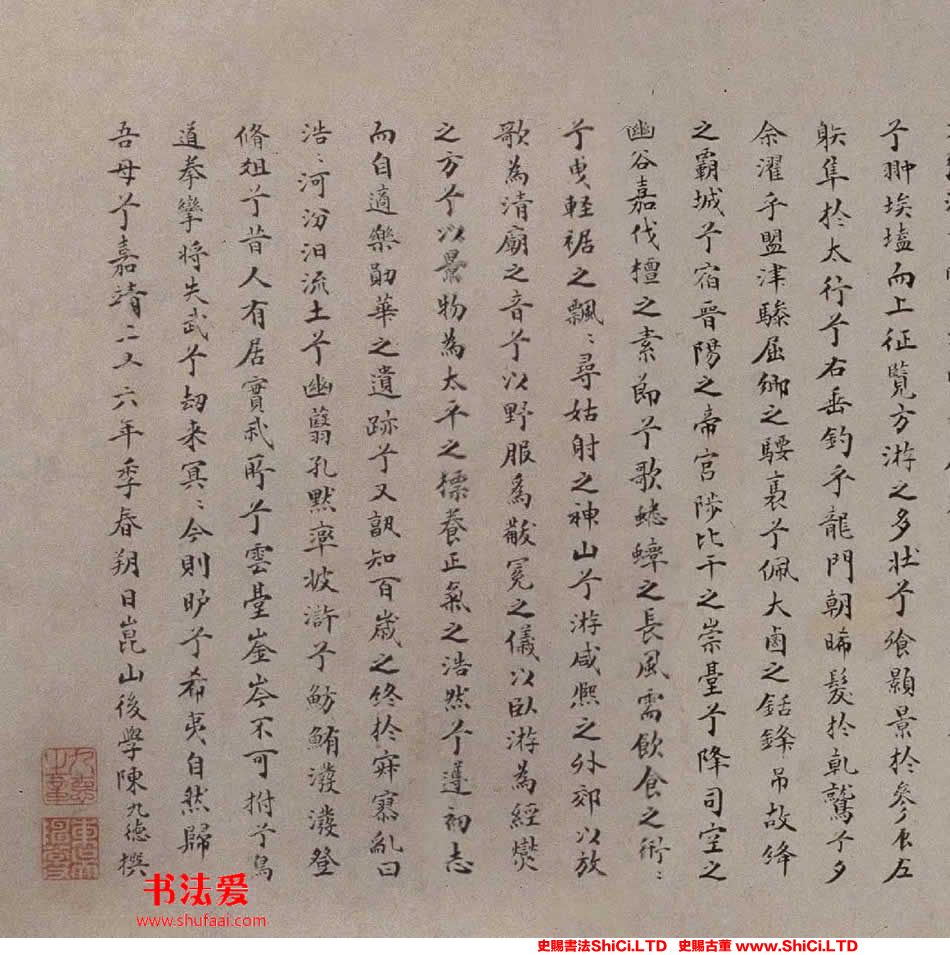 兮翀埃壒而上征覽方游之多壯兮飧顥景於參辰左
躾隼於太行兮右垂釣乎龍門朝晞髮於軋鷟兮夕
余濯乎盟津驂屈鄉之騕褭兮佩大鹵之銛鋒吊故絳
之霸城兮宿晉陽之帝宮陟比干之崇臺兮降司空之
幽谷嘉伐檀之素節兮歌蟋蟀之長風需飲食之衎:
兮曳輕裾之飄:尋姑射之神山兮游咸熙之外郊以放
歌為清廟之音兮以野服為黻冕之儀以臥游為經爕
之方兮以景物為太平之標養正氣之浩然兮遂初志
而自適樂勛華之遺跡兮又詎知百歲之終於寂寞亂曰
浩:河汾汨流土兮幽翳孔默率彼滸兮魴鮪潑潑登
脩俎兮昔人有居實我所兮雲臺崟岑不可拊兮鳥
道拳攣將失武兮劫來冥:今則昈兮希夷自然歸
吾母兮嘉靖二又六年季春朔日崑山後學陳九德撰
书法爱
www.shufaai.com
史賜書法ShiCi.LTD 史賜古董 www.ShiCi.LTD